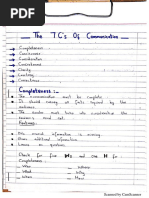 The 7 C's Of Communication
Completeness
Conciseness
Consideration
Concreteness
Clarity
Courtesy
Correctness
Completeness :-
The communication must be complete.
It should convey all facts required by the
audience.
must take into
receiver's mind set
Features:
No crucial information is missing.
Gives additional information
Leaves no question
Check for five Ws and One H for
Completeness:
Who
When
What
Why
Where
How
Scanned by CamScanner